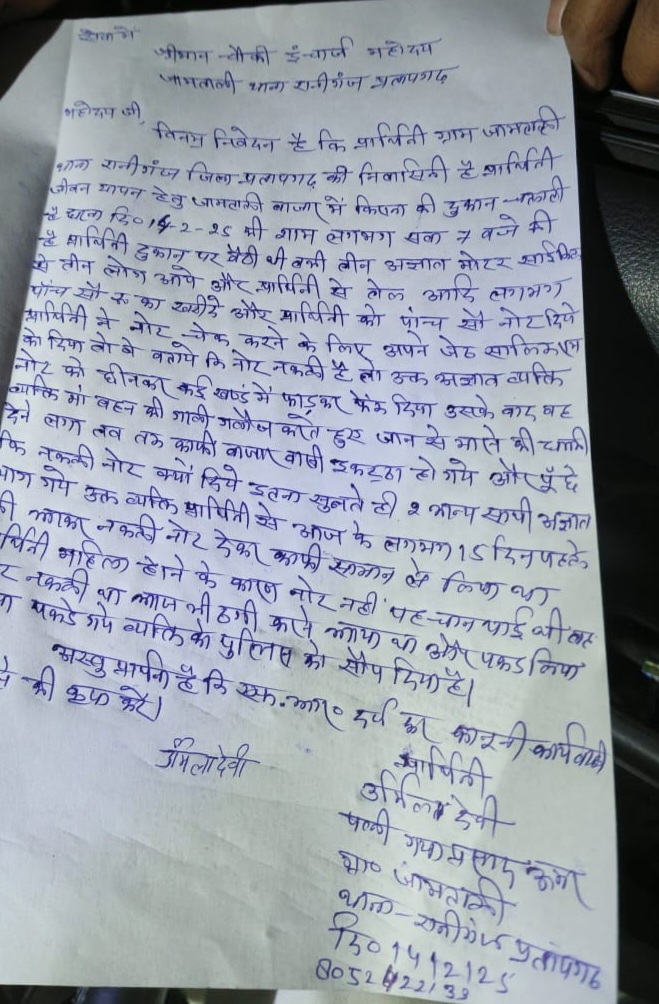 सेवा में
श्रीमान चौकी इंचार्ज महोदय
जामताली थाना रानीगंज प्रतापगढ़
महोदय जी,
विनम्र निवेदन है कि प्रार्थिनी ग्राम जामताली
थाना रानीगंज जिला प्रतापगढ़ की निवासिनी है प्रार्थिनी
जीवन यापन हेतु जामताली बाजार में किराना की दुकान चलाती
है घटना दि० 14-2-25 की शाम लगभग 7 बजे की
है प्रार्थिनी दुकान पर बैठी थी तभी तीन अज्ञात मोटर साईकिल
से तीन लोग आये और प्रार्थिनी से तेल आदि लगभग
पांच सौ रू का खरीदे और प्रार्थिनी को पांच सौ नोट दिये
प्रार्थिनी ने नोट चेक करने के लिए अपने जेठ सालिकराम
को दिया तो वे बताये कि नोट नकली है तो उक्त अज्ञात व्यक्ति
नोट को छीनकर कई खण्ड में फाड़कर फेंक दिया उसके बाद वह
व्यक्ति मां बहन की गाली गलौज करते हुए जान से मारने की धमकी
देने लगा तब तक काफी बाजार वासी इकट्ठा हो गये और पूँछे
कि नकली नोट क्यों दिये इतना सुनते ही 2 अन्य साथी अज्ञात
भाग गये उक्त व्यक्ति प्रार्थिनी से आज के लगभग 15 दिन पहले
भी आकर नकली नोट देकर काफी सामान ले लिया था
प्रार्थिनी महिला होने के कारण नोट नहीं पहचान पाई थी वह
नकली था आज भी ठगी करने आया था और पकड़ लिया
पकडे गये व्यक्ति को पुलिस को सौंप दिया है।
अस्तु प्रार्थना है कि एफ.आर० दर्ज कर कानूनी कार्यवाही
की कृपा करें।
उर्मिला देवी
प्रार्थिनी
उर्मिला देवी
पत्नी गयाप्रसाद
ग्रा० जामताली
थाना- रानीगंज प्रतापगढ़
दि० 14/2/25